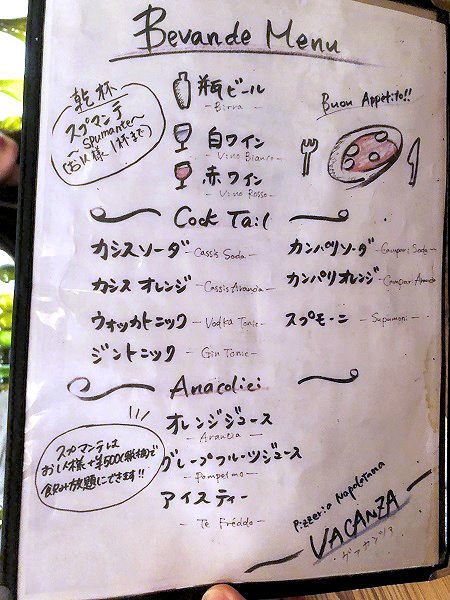 Bevande Menu
乾杯
スプマンテ
~Spumante~
(お1人様1杯まで)
瓶ビール
-Birra-
白ワイン
-Vino Bianco-
赤ワイン
-Vino Rosso-
Buon Appetito!!
Cock Tail
カシスソーダ -Cassis Soda-
カンパリソーダ -Campari Soda-
カシスオレンジ -Cassis Arancia-
カンパリオレンジ -Campari Arancia-
ウォッカトニック -Vodka Tonic-
スプモーニ -Supumoni-
ジントニック -Gin Tonic-
Anacolici
オレンジジュース
-Arancia-
グレープフルーツジュース
-Pompelmo-
アイスティー
-Te Freddo-
スプマンテは
お1人様+¥500(税抜)で
飲み放題にできます!!
Pizzeria Napoletana
VACANZA
ヴァカンツァ